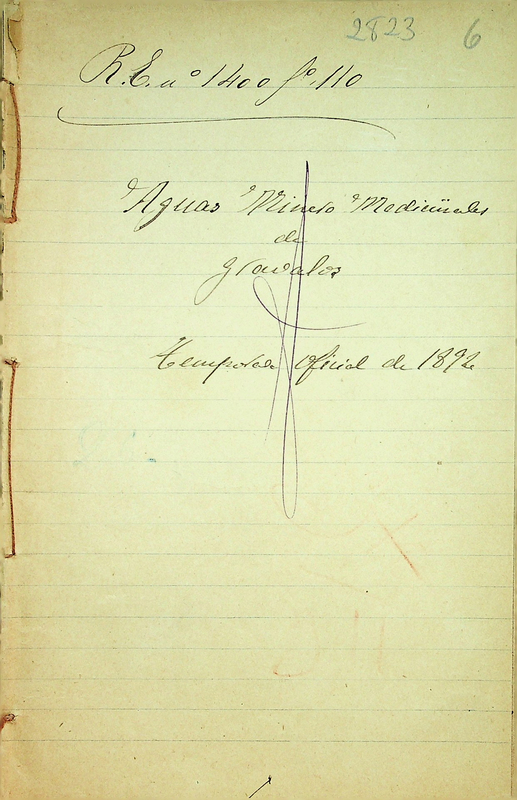 2823 6
R.E. nº 1400 fº 110
Aguas Minero Medicinales
de
Gravalos
Temporada oficial de 1892